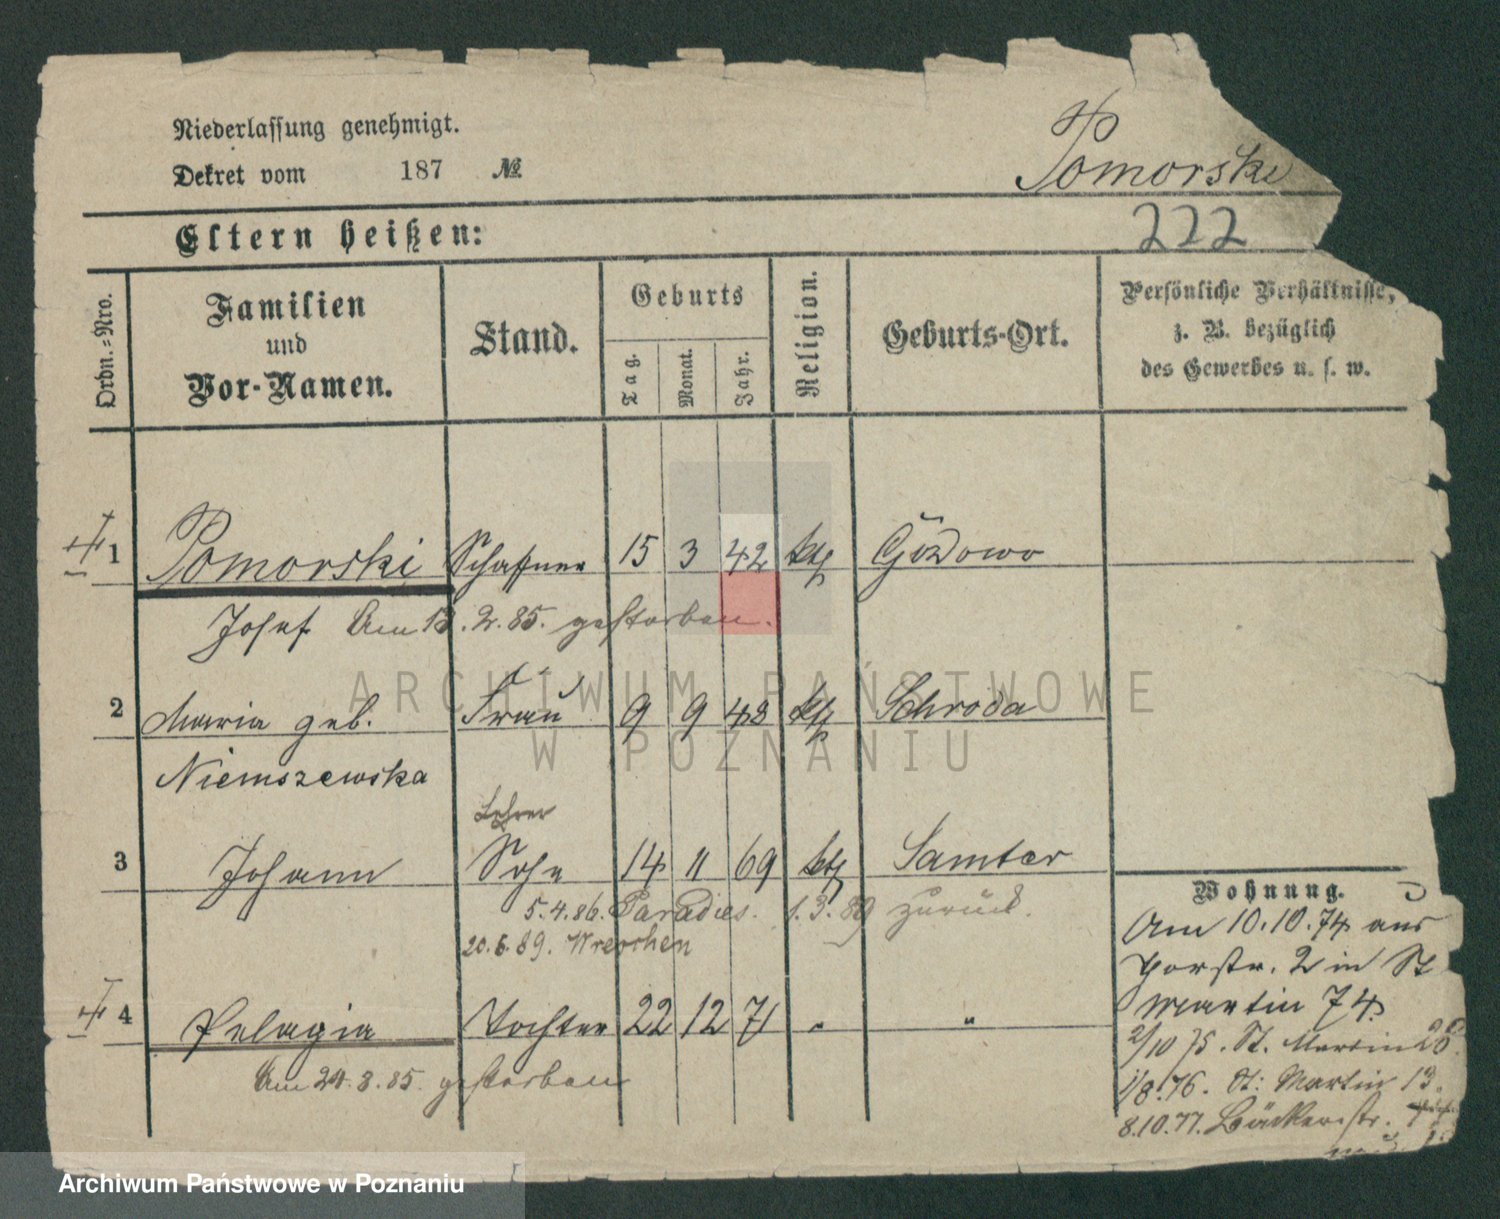 Niederlassung genehmigt.
Dekret vom 187 №
Pomorski
222
Eltern heißen:
Ordn.=Nro.
Familien
und
Vor-Namen.
Stand.
Geburts
Tag.
Monat.
Jahr.
Religion.
Geburts-Ort.
Persönliche Verhältnisse,
z. B. bezüglich
des Gewerbes u. s. w.
1 Pomorski Schaffner 15 3 42 kth Gozdowo
Josef Am 13.2.85. gestorben.
ARCHIWUM PAŃSTWOWE
W POZNANIU
2 Maria geb. Frau 9 9 48 kth Schroda
Niemszewska
Lehrer
3 Johann Sohn 14 11 69 kth Samter
5.4.86. Paradies. 1.3.89 zurück.
20.6.89. Wreschen
4 Pelagia Tochter 22 12 71 " "
Am 24.8.85. gestorben
Wohnung.
Am 10.10.74 aus
2 in St
Martin 74.
2/10 75. St. Martin 28.
1/8.76. St: Martin 13.
8.10.77. Bäckerstr.
Archiwum Państwowe w Poznaniu